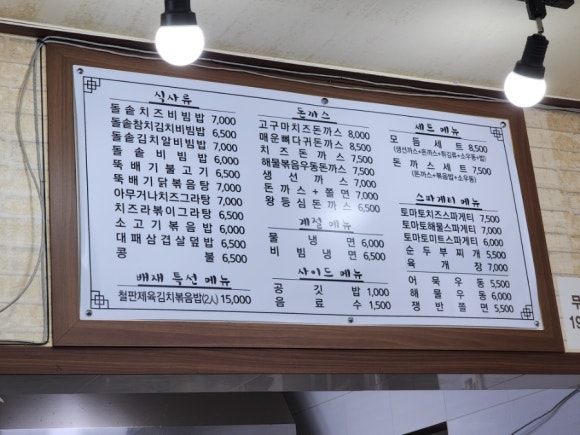 식사류
돌솥치즈비빔밥 7,000
돌솥참치김치비빔밥 6,500
돌솥김치알비빔밥 7,000
돌솥비빔밥 6,000
뚝배기불고기 6,500
뚝배기닭볶음탕 7,000
아무거나치즈그라탕 7,000
치즈라볶이그라탕 6,500
소고기볶음밥 6,000
대패삼겹살덮밥 6,500
콩불 6,500
배재 특선 메뉴
철판제육김치볶음밥(2人) 15,000
돈까스
고구마치즈돈까스 8,000
매운뼈다귀돈까스 8,000
치즈돈까스 7,500
해물볶음우동돈까스 7,500
생선까스 7,000
돈까스+쫄면 7,000
왕등심돈까스 6,500
계절 메뉴
물냉면 6,000
비빔냉면 6,500
사이드 메뉴
공깃밥 1,000
음료수 1,500
세트 메뉴
모듬세트 8,500
(생선까스+돈까스+튀김류+소우동+밥)
돈까스세트 7,500
(돈까스+볶음밥+소우동)
스파게티 메뉴
토마토치즈스파게티 7,500
토마토해물스파게티 7,000
토마토미트스파게티 6,000
순두부찌개 5,500
육개장 7,000
어묵우동 5,500
해물우동 6,000
쟁반쫄면 5,500
무
19